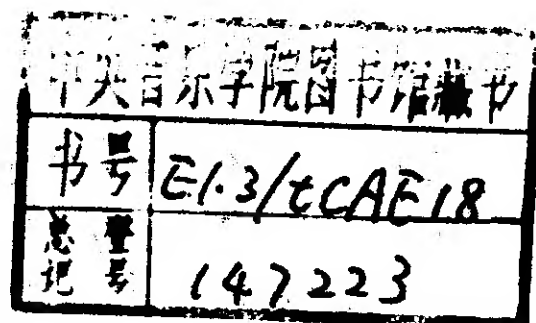 中央音乐学院图书馆藏书
书号 E1.3/tCAE18
总登记号 147223